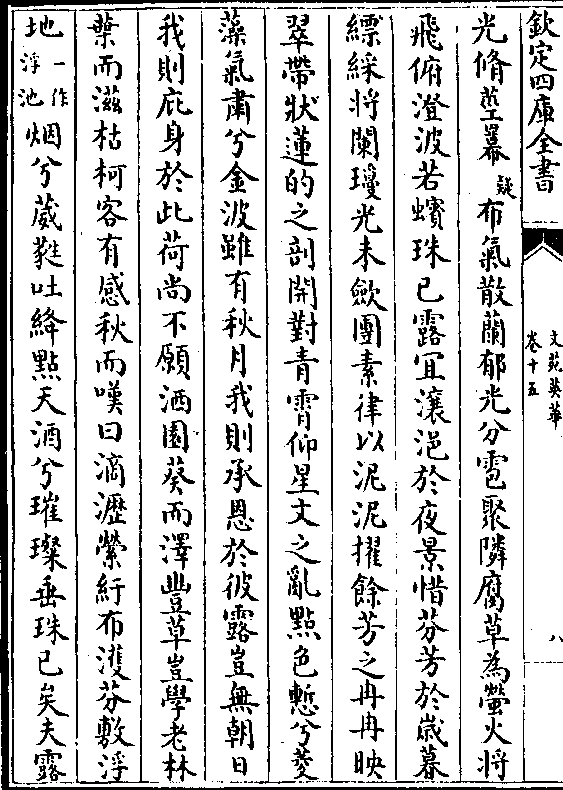 欽定四庫全書
文苑英華
卷十五
八
光脩莖幕疑布氣散蘭郁光分雹聚隣腐草為螢火將
飛俯澄波若蠙珠已露冝瀼浥於夜景惜芬芳於嵗暮
縹綵將闌瓊光未歛團素律以泥泥擢餘芳之冉冉映
翠帶狀蓮的之剖開對青霄仰星文之亂點色慙兮菱
藻氣肅兮金波雖有秋月我則承恩於彼露豈無朝日
我則庇身於此荷尚不願洒園葵而澤豐草豈學老林
葉而滋枯柯客有感秋而嘆曰滴瀝縈紆布濩芬敷浮
地一作浮池烟兮葳蕤吐絳點天酒兮璀璨垂珠已矣夫露